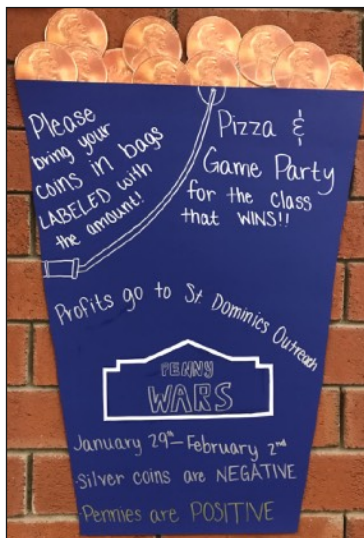 Please
bring your
coins in bags
LABELED with
the amount!
Pizza &
Game Party
for the class
that WINS!!
Profits go to St. Dominics Outreach
PENNY
WARS
January 29th - February 2nd
-Silver coins are NEGATIVE
-Pennies are POSITIVE